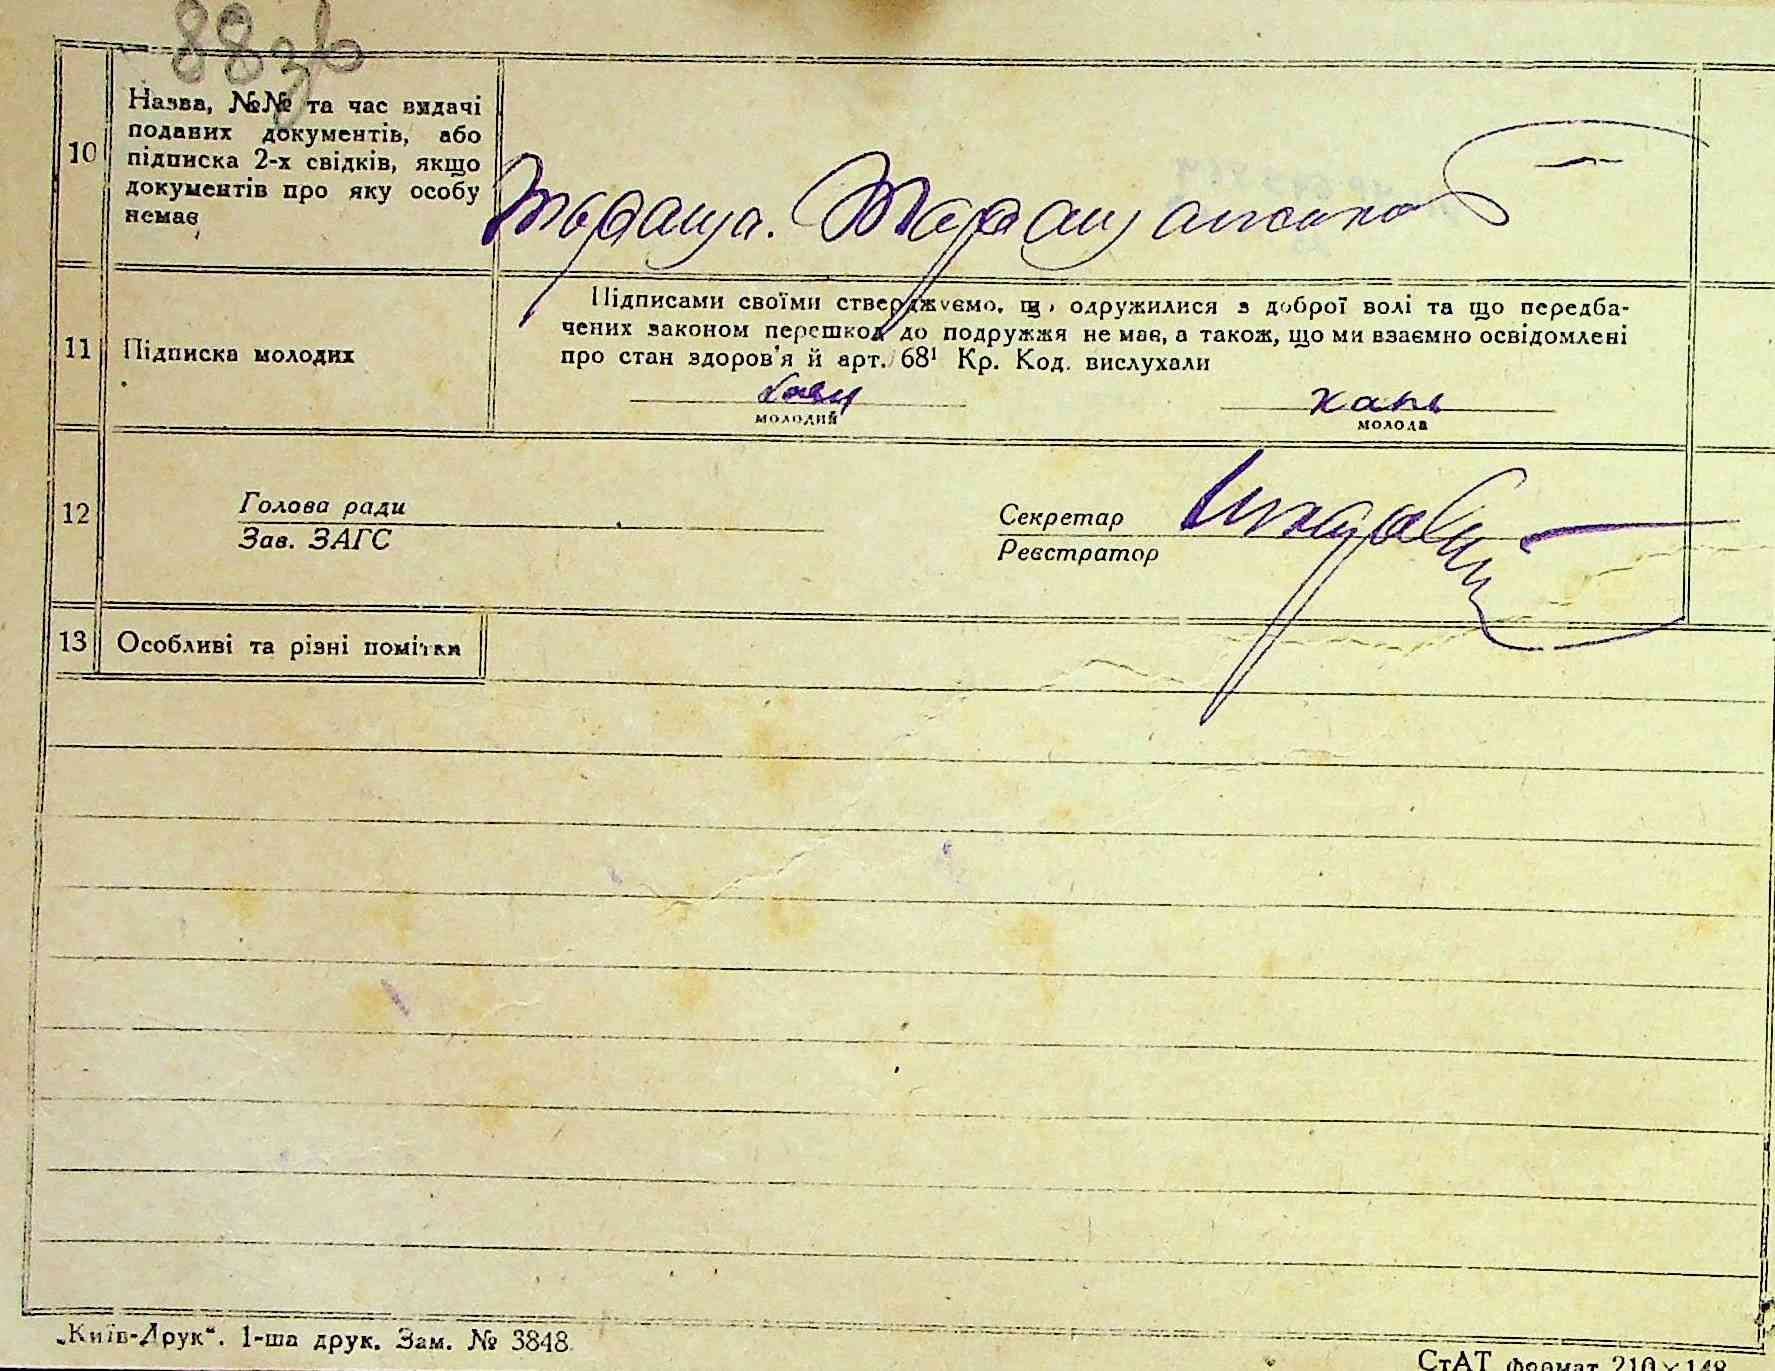 88зв
10
Назва, №№ та час видачі
поданих документів, або
підписка 2-х свідків, якщо
документів про яку особу
немає
Тараща. Таращанского
11
Підписка молодих
Підписами своїми стверджуємо, що одружилися з доброї волі та що передба-
чених законом перешкод до подружжя не має, а також, що ми взаємно освідомлені
про стан здоров'я й арт. 68¹ Кр. Код. вислухали
молодий
молода
12
Голова ради
Зав. ЗАГС
Секретар
Реєстратор
13
Особливі та різні помітки
„Київ-Друк“. 1-ша друк. Зам. № 3848
СтАТ формат 210×148